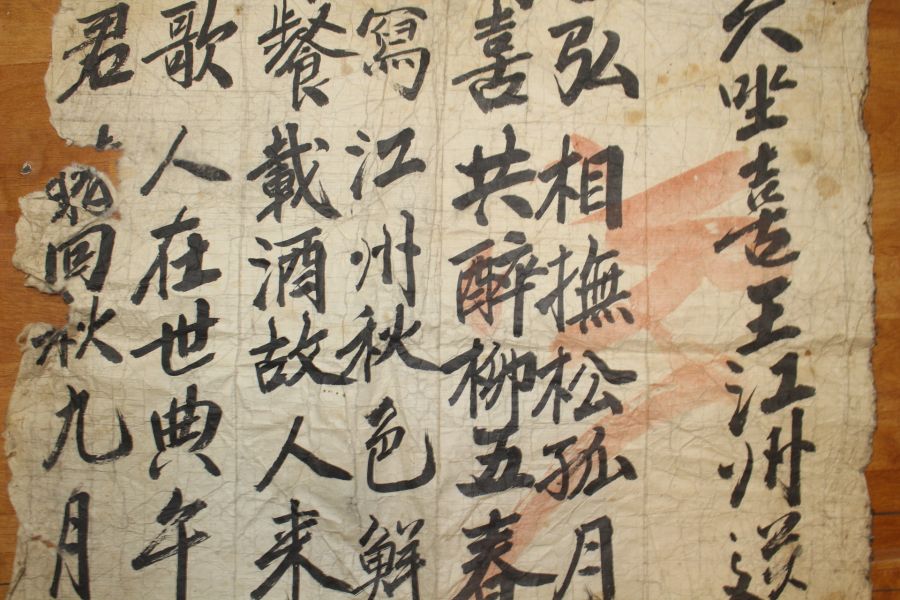 久坐喜王江州送
弘相撫松孤月
喜共醉柳五春
寫江州秋色鮮
餐載酒故人来
歌人在世典午
君回秋九月